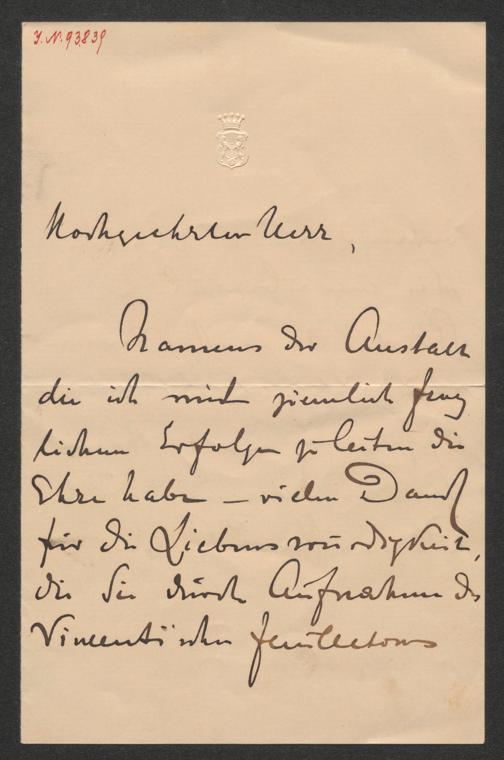 I. N. 93839
Hochgeehrter Herr,
Namens der Anstalt
die ich mit ziemlich frag
lichem Erfolge zu leiten die
Ehre habe – vielen Dank
für die Liebenswürdigkeit,
die Sie durch Aufnahme des
Vincenti'schen Feuilletons